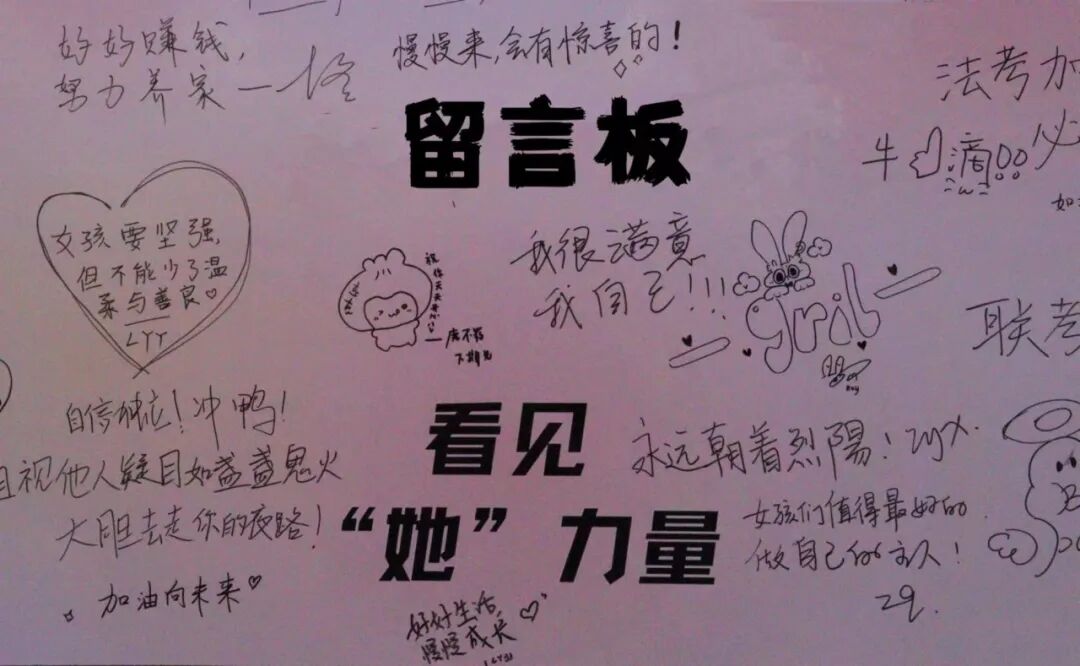 好好赚钱,
努力养家
慢慢来,会有惊喜的!
留言板
法考加
牛
滴
必
女孩要坚强,
但不能少了温
柔与善良♡
LYY
我很满意
我自己!!!
gril
联考
自信独立!冲鸭!
且视他人疑目如盏盏鬼火
大胆去走你的夜路!
加油向未来♡
看见
“她”力量
永远朝着烈陽! zyx.
女孩们值得最好的
做自己的主人!
zq.
好好生活
慢慢成长